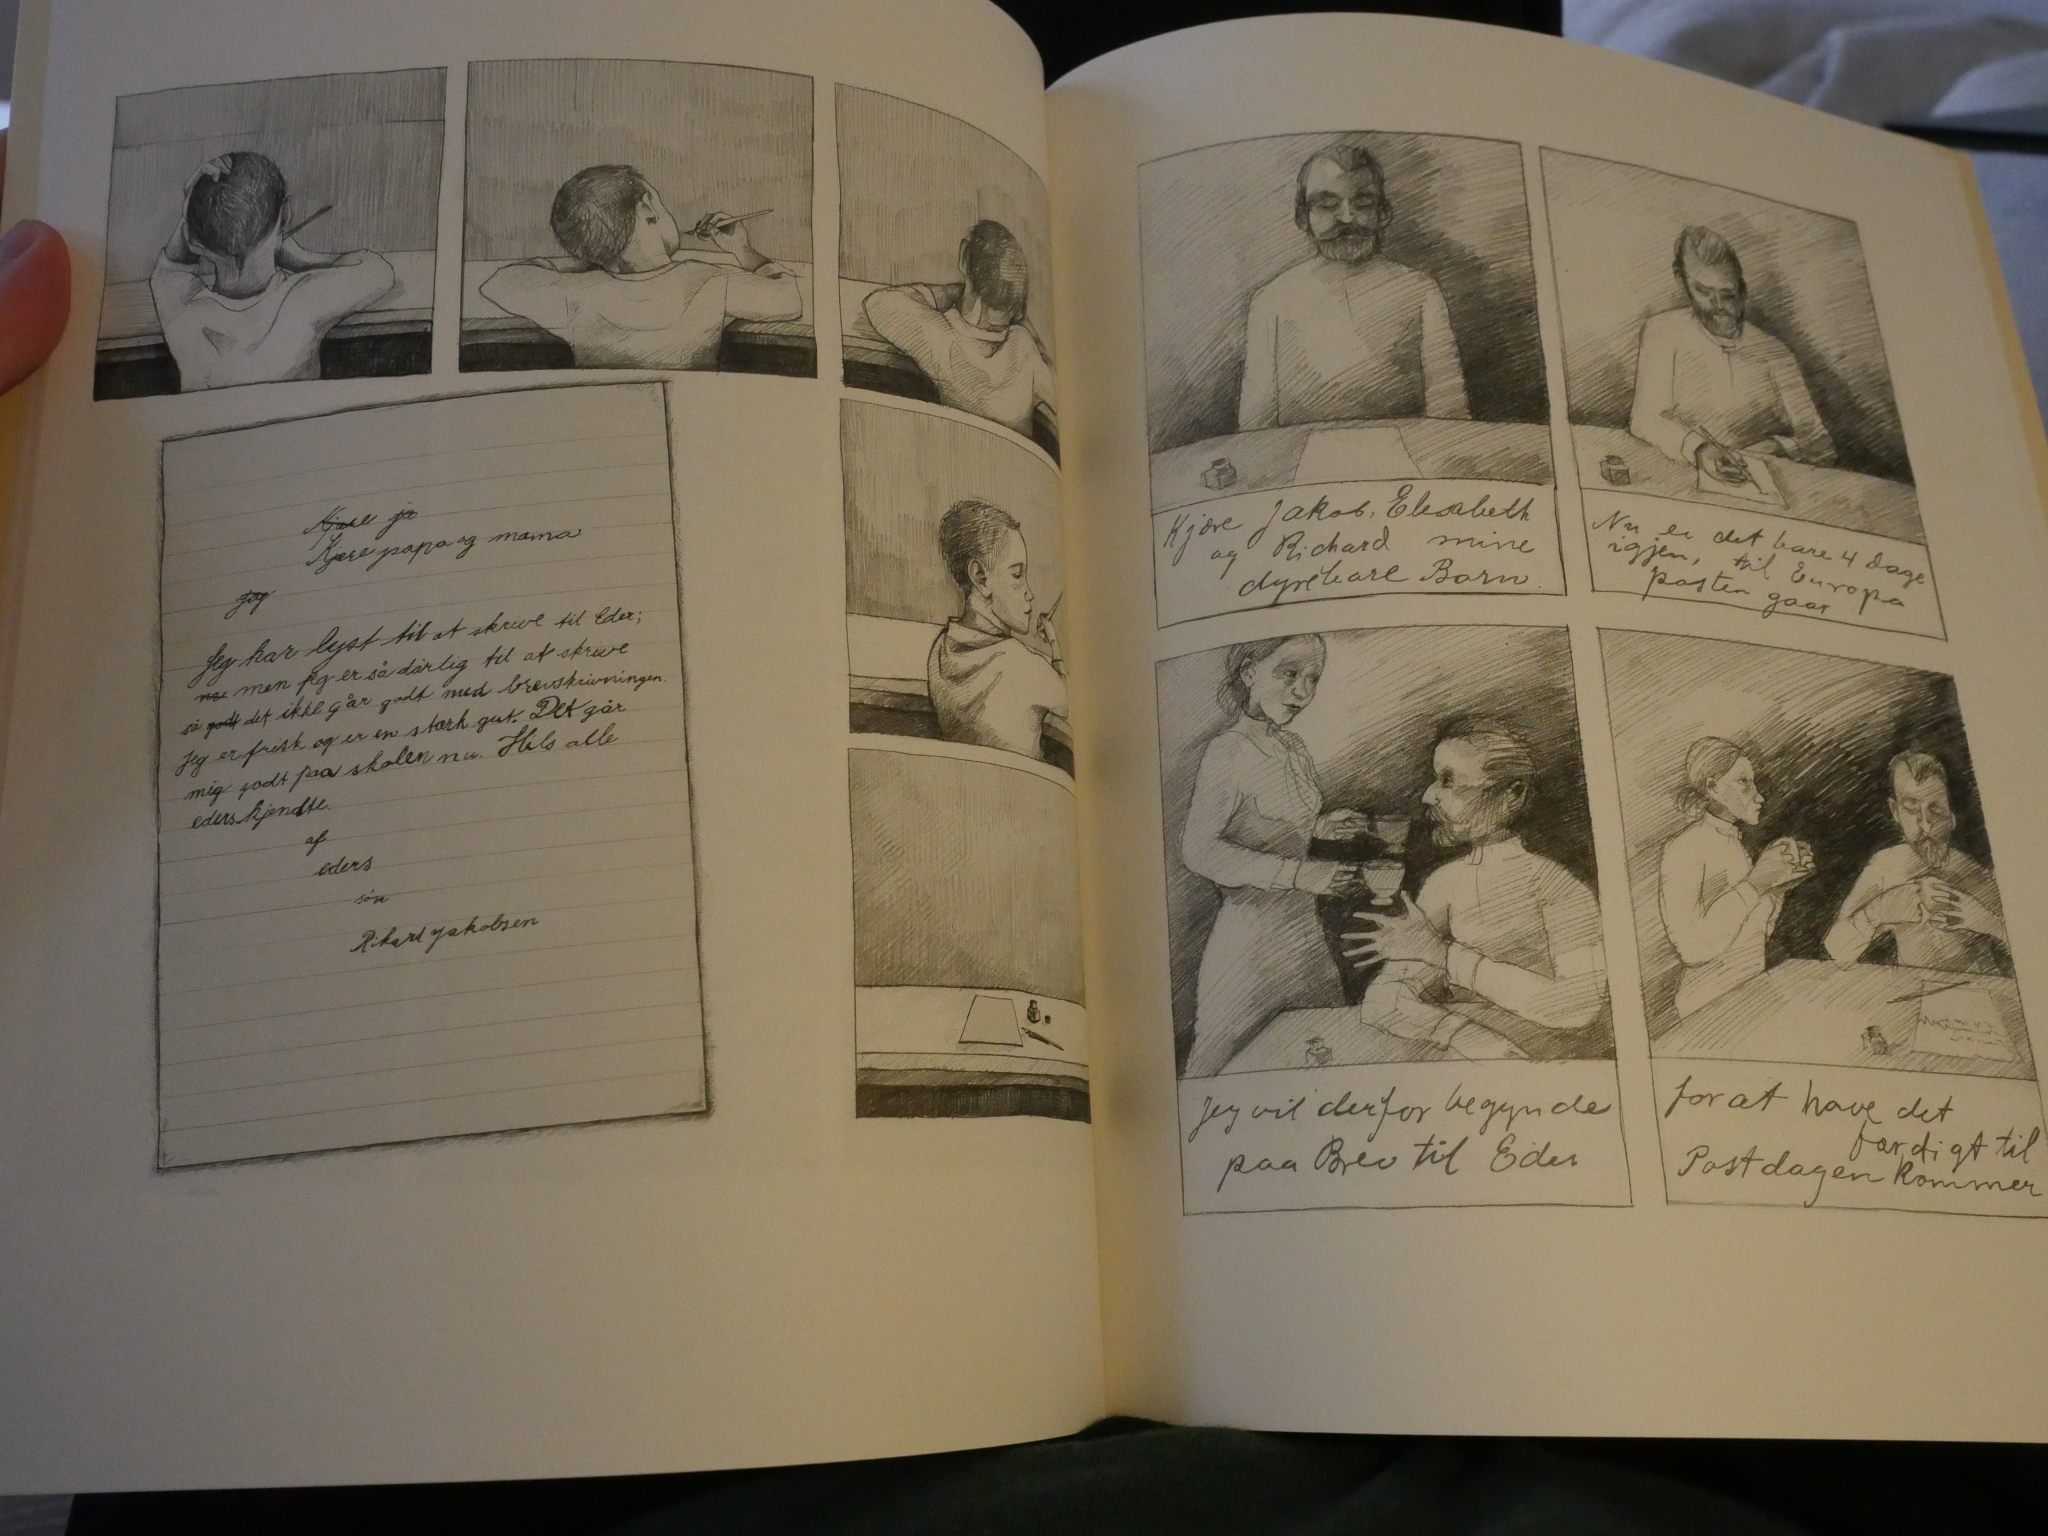 Kjære ja
Kjære papa og mama
jag
Jeg har lyst til at skrive til Eder;
men jeg er så dårlig til at skrive
så godt det ikke går godt med brevskrivningen.
Jeg er frisk og er en stærk gut. Det går
mig godt paa skolen nu. Hils alle
eders kjendte.
af
eders
søn
Rikard Jakobsen
Kjære Jakob, Elesabeth
og Richard mine
dyrebare Barn.
Nu er det bare 4 Dage
igjen, til Europa
posten gaar
Jeg vil derfor begynde
paa Brev til Eder
for at have det
færdigt til
Postdagen kommer